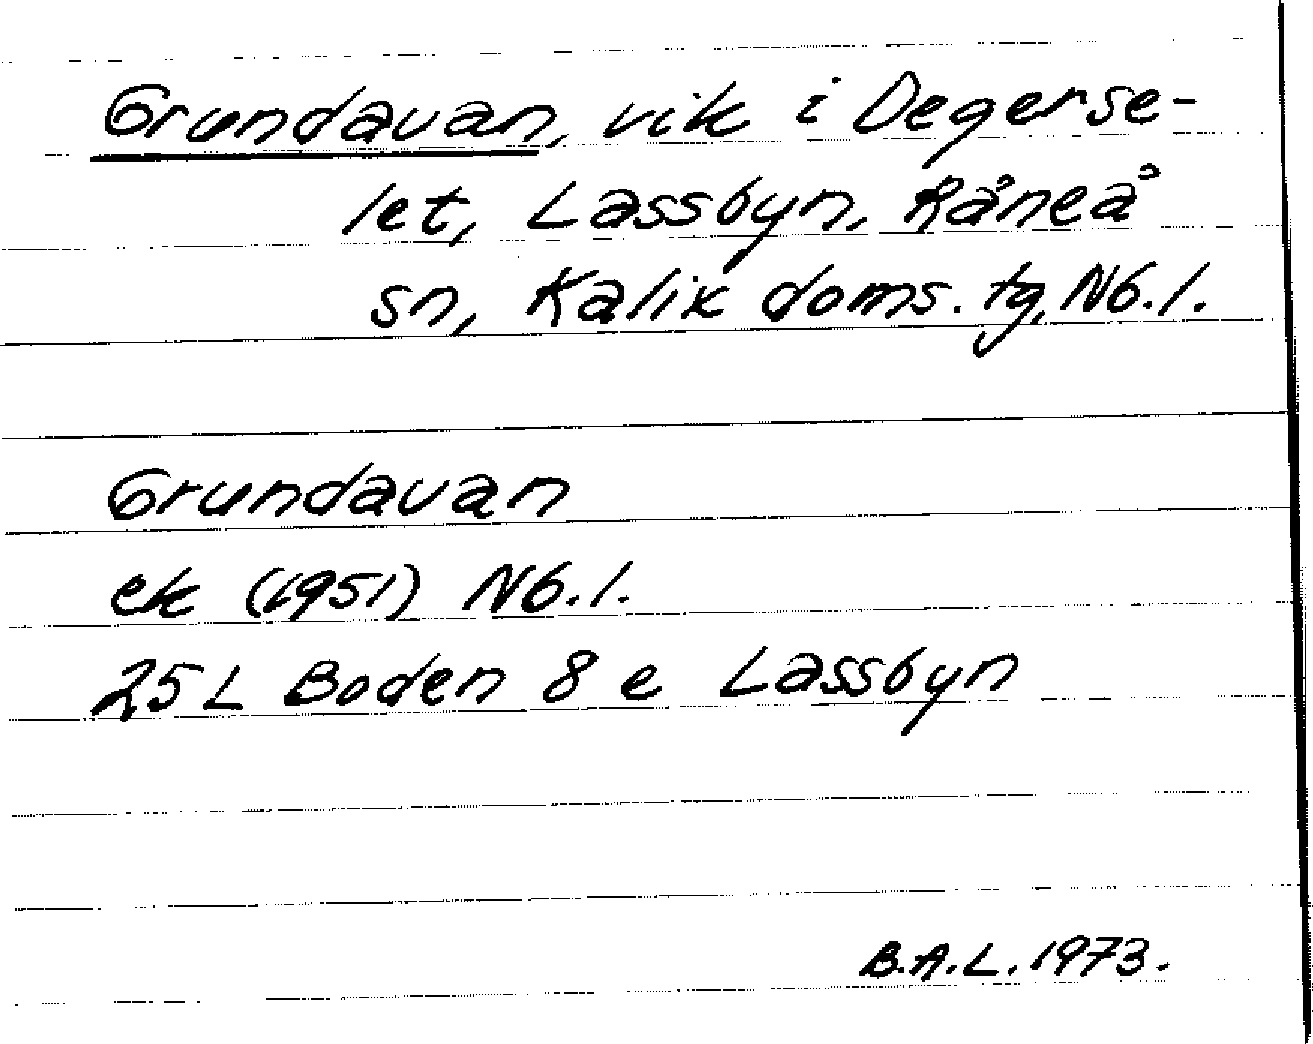 Grundavan, vik i Degerse-
let, Lassbyn, Råneå
sn, Kalix doms. tg, Nb. l.
Grundavan
ek (1951) Nb. l.
25 L Boden 8 e Lassbyn
B.A.L. 1973.